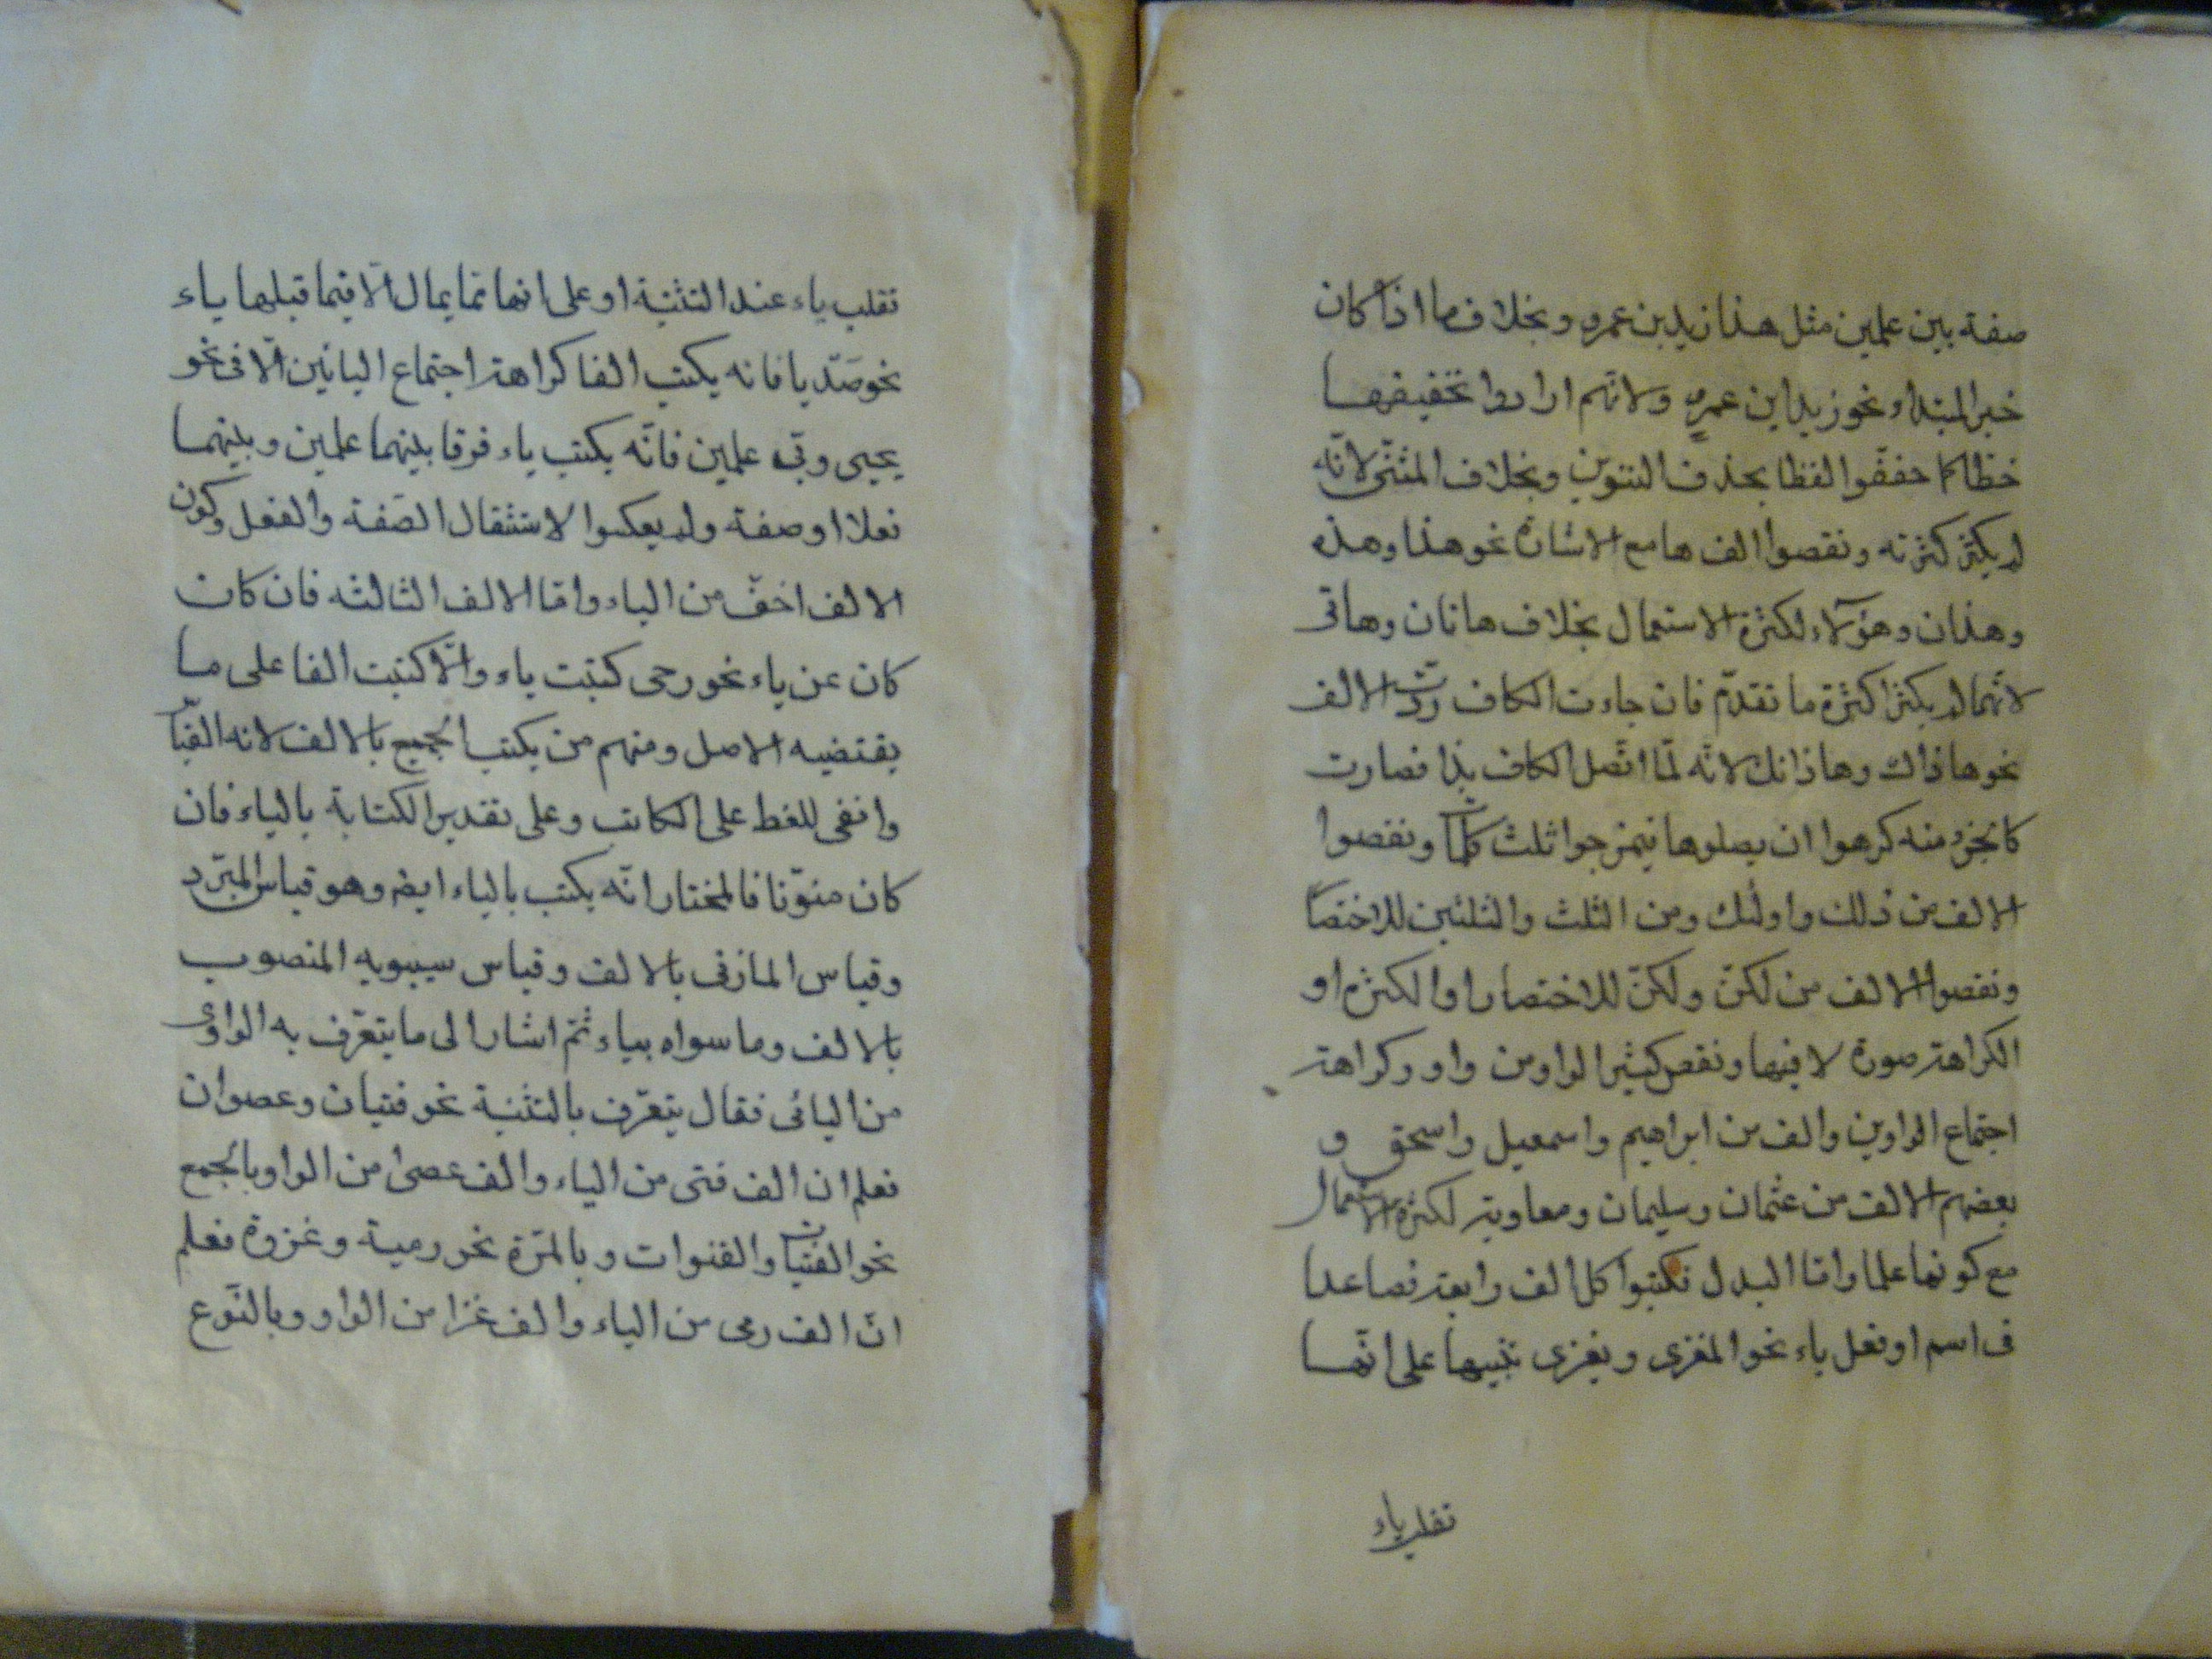 صفة بين علمين مثل هذا زيد بن عمرو وبخلاف ما اذا كان
خبر المبتداء نحو زيد ابن عمرو ولانهم ارادوا تخفيفها
خطا كما خففوا لفظا بحذف التنوين وبخلاف المثنى لانه
لم يكثر كثرته ونقصوا الف ها مع الاشارة نحو هذا وهذه
وهذان وهؤلاء لكثرة الاستعمال بخلاف هاتان وهاتى
لانهما لم يكثرا كثرة ما تقدّم فان جاءت الكاف ردّت الالف
نحو هاذاك وهاذانك لانّه لمّا اتّصل الكاف بذا فصارت
كالجزء منه كرهوا ان يصلوها فيمزجوا ثلث كلمات ونقصوا
الالف من ذلك واولئك ومن الثلث والثلثين للاختصا
ونقصوا الالف من لكنّ ولكنّ للاختصار او الكثرة او
الكراهة صورة لا فيها ونقص كثير الواو من واو وكراهة
اجتماع الواوين والف من ابراهيم واسمعيل واسحق و
بعضهم الالف من عثمان وسليمان ومعاوية لكثرة الاستعمال
مع كونها علما وامّا البدل فكتبوا كل الف رابعة فصاعدا
فى اسم او فعل ياء نحو المغزى ويغزى تنبيها على انّها
تقلب ياء
تقلب ياء عند التثنية او على انها ممّا يمال الّا فيما قبلها ياء
نحو صَدّيا فانه يكتب الفا كراهة اجتماع اليائين الّا فى نحو
يحيى وريّى علمين فانّه يكتب ياء فرقا بينهما علمين وبينهما
فعلا او صفة ولم يعكسوا لاستثقال الصّفة والفعل وكون
الالف اخفّ من الياء وامّا الالف الثالثه فان كان
كان عن ياء نحو رحى كتبت ياء والّا كتبت الفا على ما
يقتضيه الاصل ومنهم من يكتب الجميع بالالف لانه القيا
وانفى للغط على الكاتب وعلى تقدير الكتابة بالياء فان
كان منوّنا فالمختار انّه يكتب بالياء ايض وهو قياس المبرّد
وقياس المازنى بالالف وقياس سيبويه المنصوب
بالالف وما سواه بياء ثمّ اشار الى ما يتعرّف به الواوى
من اليائى فقال يتعرّف بالتثنية نحو فتيان وعصوان
فعلم ان الف فتى من الياء والف عصى من الواو وبالجمع
نحو الفتيات والقنوات وبالمرّة نحو رمية وغزوة فعلم
انّ الف رمى من الياء والف غزا من الواو وبالنّوع